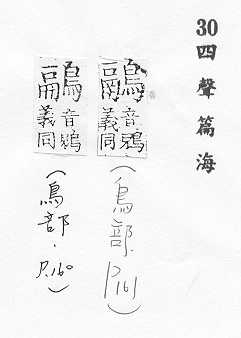 30 四聲篇海
音
義同
(鳥部.P.161)
音
義同
(鳥部.P.160)